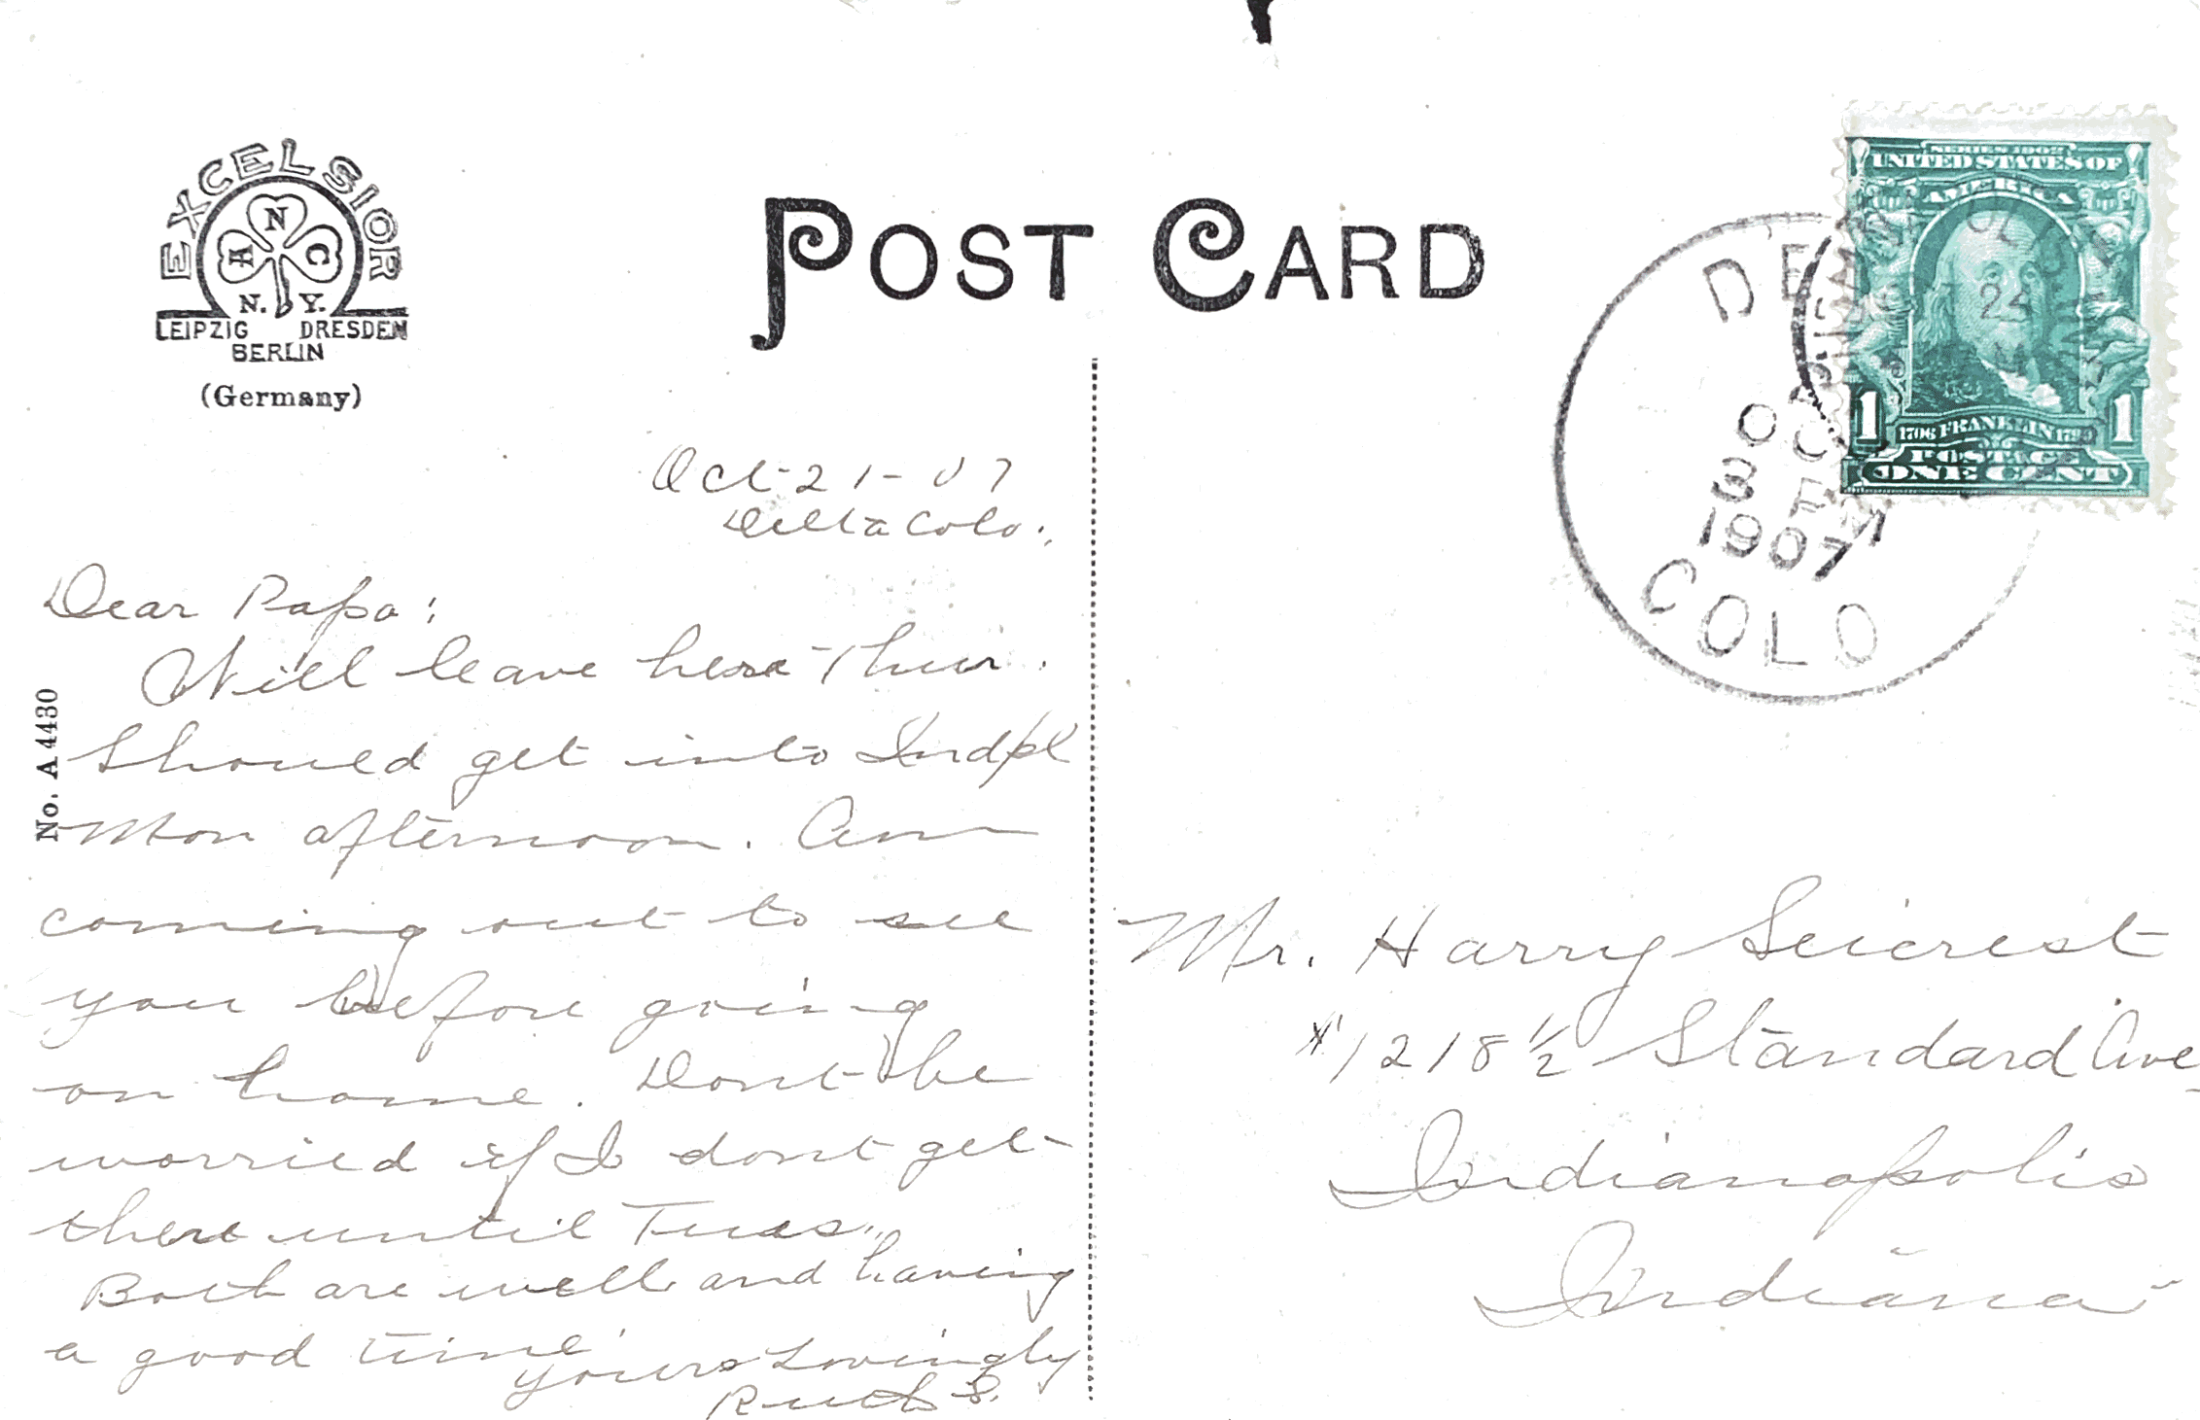 EXCELSIOR
A N C
N. Y.
LEIPZIG DRESDEN
BERLIN
(Germany)
POST CARD
SERIES 1902
UNITED STATES OF
AMERICA
1 1706 FRANKLIN 1790 1
POSTAGE
ONE CENT
DE
OC
3 PM
1907
COLO
No. A 4430
Oct-21-07
Delta Colo.
Dear Papa:
Will leave here Thur.
Should get into Indpl
Mon afternoon. Am
coming out to see
you before going
on home. Dont be
worried if I dont get
there until Tues.
Both are well and having
a good time
Yours Lovingly
Ruth S.
Mr. Harry Seicrest
#1218 1/2 Standard Ave
Indianapolis
Indiana